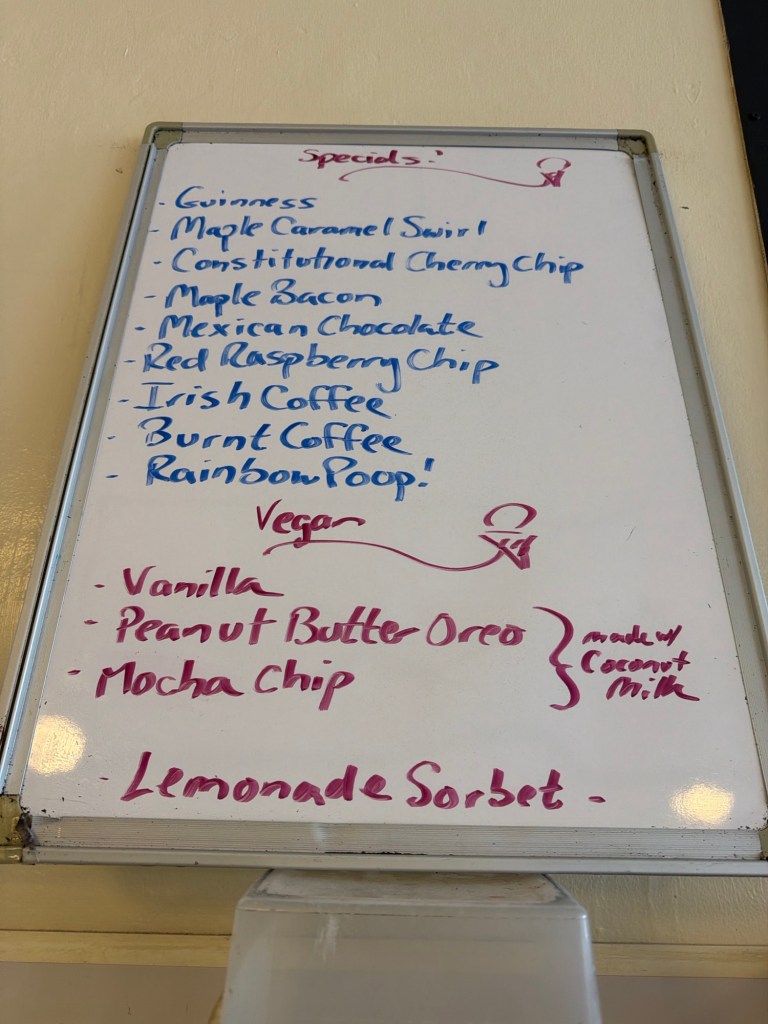 Specials!
- Guinness
- Maple Caramel Swirl
- Constitutional Cherry Chip
- Maple Bacon
- Mexican Chocolate
- Red Raspberry Chip
- Irish Coffee
- Burnt Coffee
- Rainbow Poop!
Vegan
- Vanilla
- Peanut Butter Oreo
- Mocha Chip
made w/
Coconut
Milk
- Lemonade Sorbet -